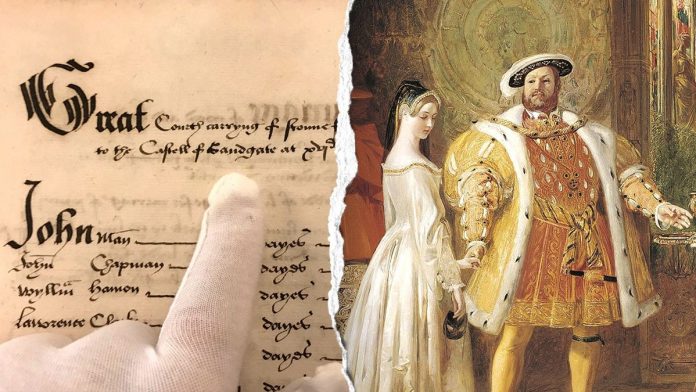 Great Courth carryng of stonne
to the Castell of Sandgate at xviijd
John man dayes
John Chapman dayes
Wyllm Hamon dayes
Lawrence dayes
dayes
dayes